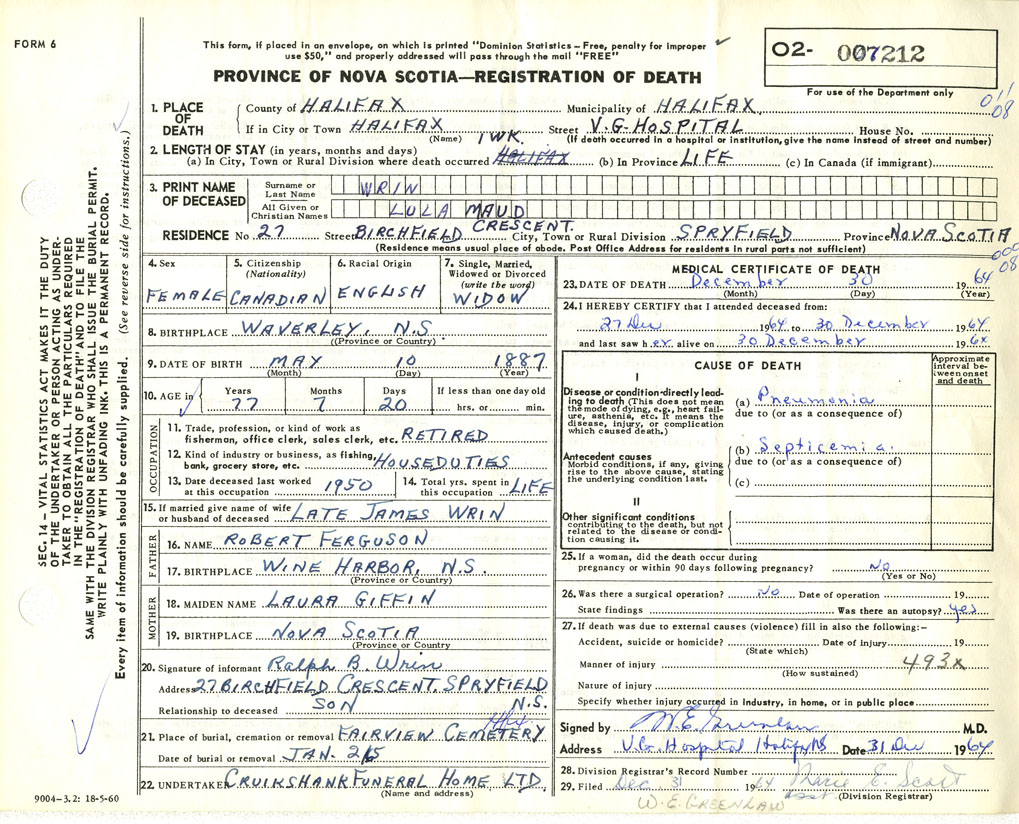 FORM 6
This form, if placed in an envelope, on which is printed "Dominion Statistics – Free, penalty for improper
use $50," and properly addressed will pass through the mail "FREE"
PROVINCE OF NOVA SCOTIA—REGISTRATION OF DEATH
O2- 007212
For use of the Department only
011
08
SEC. 14 – VITAL STATISTICS ACT MAKES IT THE DUTY
OF THE UNDERTAKER OR PERSON ACTING AS UNDER-
TAKER TO OBTAIN ALL THE PARTICULARS REQUIRED
IN THE "REGISTRATION OF DEATH" AND TO FILE THE
SAME WITH THE DIVISION REGISTRAR WHO SHALL ISSUE THE BURIAL PERMIT.
WRITE PLAINLY WITH UNFADING INK. THIS IS A PERMANENT RECORD.
Every item of information should be carefully supplied. (See reverse side for instructions.)
1. PLACE OF DEATH
County of HALIFAX Municipality of HALIFAX
If in City or Town HALIFAX Street V.G. HOSPITAL House No.
(Name) (If death occurred in a hospital or institution, give the name instead of street and number)
2. LENGTH OF STAY (in years, months and days) 1 WK.
(a) In City, Town or Rural Division where death occurred HALIFAX (b) In Province LIFE (c) In Canada (if immigrant)
3. PRINT NAME OF DECEASED
Surname or Last Name WRIN
All Given or Christian Names LULA MAUD
RESIDENCE No. 27 Street BIRCHFIELD CRESCENT. City, Town or Rural Division SPRYFIELD Province NOVA SCOTIA
(Residence means usual place of abode. Post Office Address for residents in rural parts not sufficient)
000
08
4. Sex FEMALE
5. Citizenship (Nationality) CANADIAN
6. Racial Origin ENGLISH
7. Single, Married, Widowed or Divorced (write the word) WIDOW
8. BIRTHPLACE WAVERLEY, N.S
(Province or Country)
9. DATE OF BIRTH MAY 10 1887
(Month) (Day) (Year)
10. AGE in Years 77 Months 7 Days 20 If less than one day old hrs. or min.
OCCUPATION
11. Trade, profession, or kind of work as
fisherman, office clerk, sales clerk, etc. RETIRED
12. Kind of industry or business, as fishing,
bank, grocery store, etc. HOUSEDUTIES
13. Date deceased last worked at this occupation 1950
14. Total yrs. spent in this occupation LIFE
15. If married give name of wife
or husband of deceased LATE JAMES WRIN
FATHER
16. NAME ROBERT FERGUSON
17. BIRTHPLACE WINE HARBOR, N.S.
(Province or Country)
MOTHER
18. MAIDEN NAME LAURA GIFFIN
19. BIRTHPLACE NOVA SCOTIA
(Province or Country
20. Signature of informant Ralph B. Wrin
Address 27 BIRCHFIELD CRESCENT. SPRYFIELD
N.S.
Relationship to deceased SON
Hfx
21. Place of burial, cremation or removal FAIRVIEW CEMETERY
Date of burial or removal JAN. 2 65
22. UNDERTAKER CRUIKSHANK FUNERAL HOME LTD,
(Name and address)
9004–3.2: 18-5-60
MEDICAL CERTIFICATE OF DEATH
23. DATE OF DEATH December 30 1964
(Month) (Day) (Year)
24. I HEREBY CERTIFY that I attended deceased from:
27 Dec 1964 to 30 December 1964
and last saw her alive on 30 December 1964
CAUSE OF DEATH
Approximate interval between onset and death
I
Disease or condition directly lead-
ing to death (This does not mean
the mode of dying, e.g., heart fail-
ure, asthenia, etc. It means the
disease, injury, or complication
which caused death.)
(a) Pneumonia
due to (or as a consequence of)
Antecedent causes
Morbid conditions, if any, giving
rise to the above cause, stating
the underlying condition last.
(b) Septicemia.
due to (or as a consequence of)
(c)
II
Other significant conditions
contributing to the death, but not
related to the disease or condi-
tion causing it.
25. If a woman, did the death occur during
pregnancy or within 90 days following pregnancy? No
(Yes or No)
26. Was there a surgical operation? No Date of operation 19
State findings Was there an autopsy? yes
27. If death was due to external causes (violence) fill in also the following:–
Accident, suicide or homicide? Date of injury 19
(State which)
Manner of injury 493x
(How sustained)
Nature of injury
Specify whether injury occurred in Industry, in home, or in public place
Signed by W.E. Greenlaw M.D.
Address V.G. Hospital Halifax NS Date 31 Dec 1964
28. Division Registrar's Record Number
29. Filed Dec. 31 1964 Marie E. Scott
asst (Division Registrar)
W. E. GREENLAW